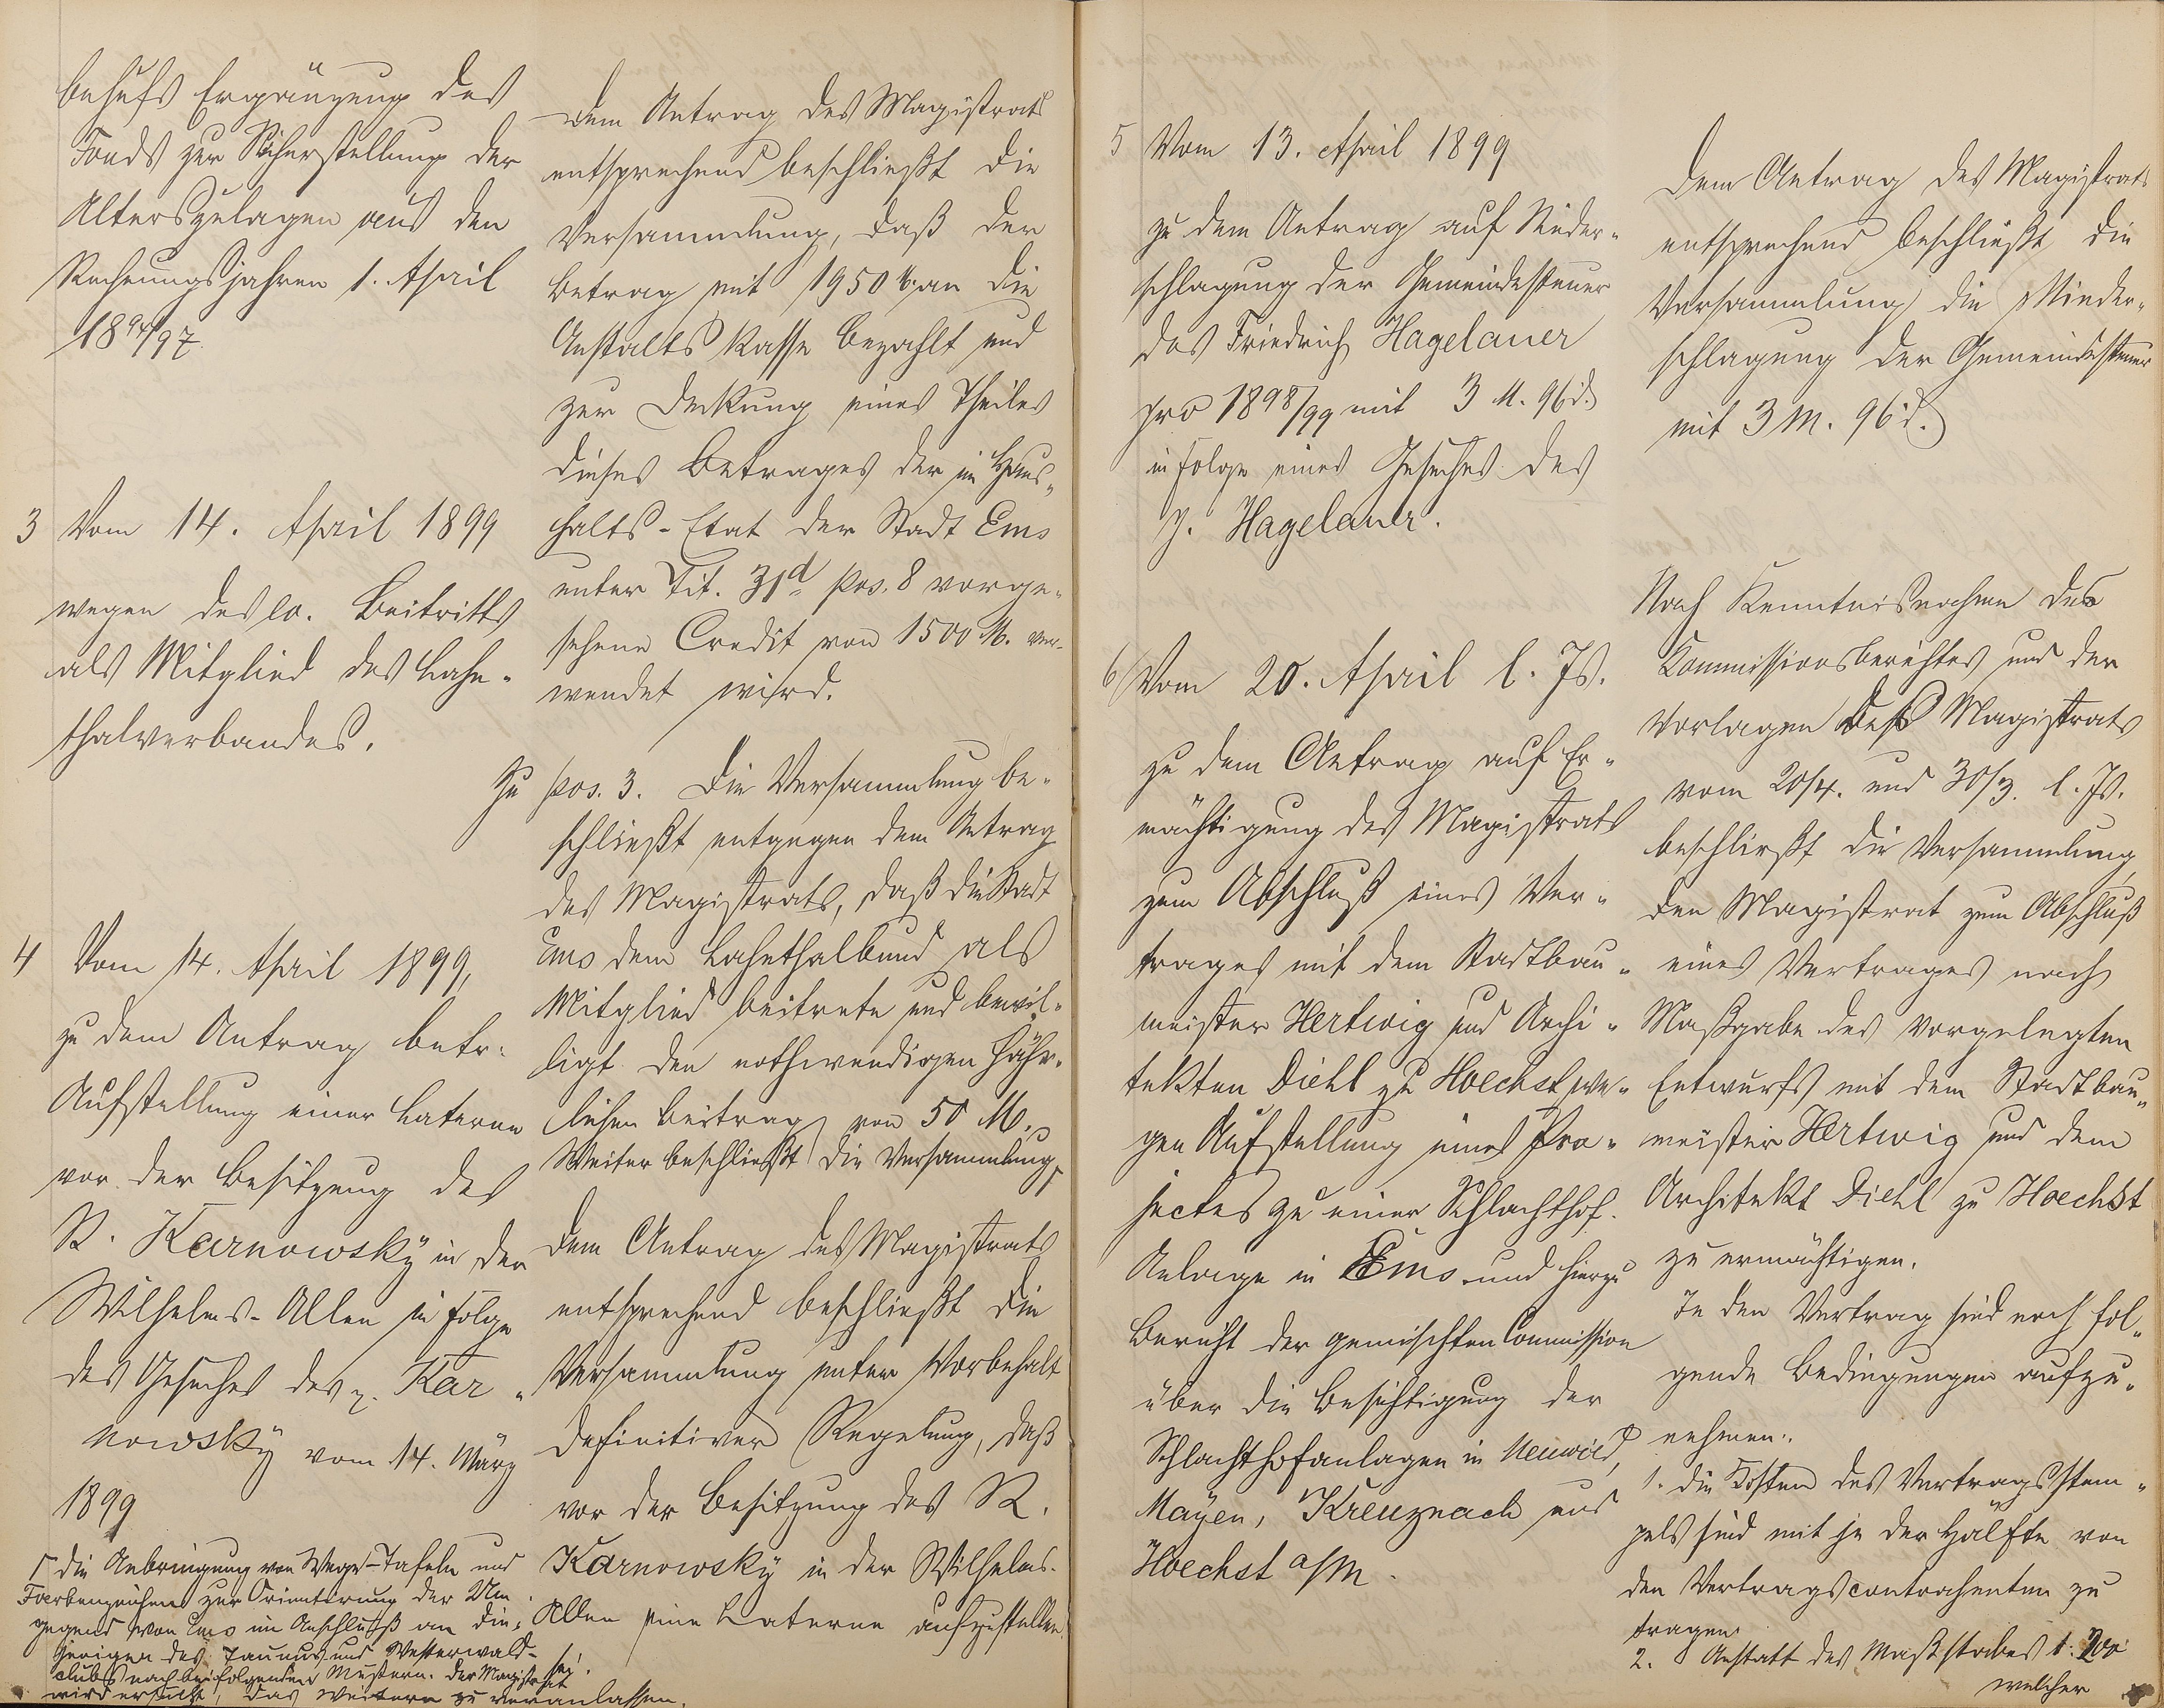 behufs Ergänzung des
Fonds zur Sicherstellung der
Alterszulagen aus den
Rechnungsjahren 1. April
1894/97.
3 Vom 14. April 1899
wegen des Beitritts
als Mitglied des Lahn-
thalverbandes.
4 Vom 14. April 1899,
zu dem Antrag betr.
Aufstellung einer Laterne
vor der Besitzung des
R. Karnowsky in der
Wilhelms-Allee in Folge
des Gesuches des p. Kar-
nowsky vom 14. März
1899
Γ die Anbringung von Wege-Tafeln und
Farbenzeichen zur Orientierung der Um-
gegend von Ems im Anschluß an die-
jenigen des Taunus und Westerwald-
clubs nach beifolgenden Mustern. Der Magistrat
wird ersucht, das Weitere zu veranlassen.
Dem Antrag des Magistrats
entsprechend beschließt die
Versammlung, daß der
Betrag mit 1950 M. an die
Anstalts Kasse bezahlt und
zur Deckung eines Theiles
dieses Betrages der im Haus-
halts-Etat der Stadt Ems
unter Tit. 31d pos. 8 vorge-
sehene Credit von 1500 M. ver-
wendet wird.
Zu pos. 3. Die Versammlung be-
schließt entgegen dem Antrag
des Magistrats, daß die Stadt
Ems dem Lahnthalbund als
Mitglied beitrete und bewil-
ligt den nothwendigen jähr-
lichen Beitrag von 50 M.
Weiter beschließt die Versammlung Γ
Dem Antrag des Magistrats
entsprechend beschließt die
Versammlung unter Vorbehalt
definitiver Regelung, daß
vor der Besitzung des R.
Karnowsky in der Wilhelms-
Allee eine Laterne aufzustellen
sei.
5 Vom 13. April 1899
zu dem Antrag auf Nieder-
schlagung der Gemeindesteuer
des Friedrich Hagelauer
pro 1898/99 mit 3 M. 96 d.
in Folge eines Gesuches des
p. Hagelauer.
6 Vom 20. April l. Js.
zu dem Antrag auf Er-
mächtigung des Magistrats
zum Abschluß eines Ver-
trages mit dem Stadtbau-
meister Hertwig und Archi-
tekten Diehl zu Hoechst we-
gen Aufstellung eines Pro-
jectes zu einer Schlachthof-
Anlage in Ems und hierzu
Bericht der gemischten Commission
über die Besichtigung der
Schlachthofanlagen in Neuwied,
Mayen, Kreuznach und
Hoechst a/M.
Dem Antrag des Magistrats
entsprechend beschließt die
Versammlung die Nieder-
schlagung der Gemeindesteuer
mit 3 M. 96 d.
Nach Kenntnisnahme des
Kommissionsberichtes und der
Vorlagen des Magistrats
vom 20/4. und 30/3. l. Js.
beschließt die Versammlung,
den Magistrat zum Abschluß
eines Vertrages nach
Maßgabe des vorgelegten
Entwurfs mit dem Stadtbau-
meister Hertwig und dem
Architekt Diehl zu Hoechst
zu ermächtigen.
In den Vertrag sind noch fol-
gende Bedingungen aufzu-
nehmen:
1. die Kosten des Vertragsstem-
pels sind mit je der Hälfte von
den Vertragscontrahenten zu
tragen
2. Anstatt des Maßstabes 1:200
welcher